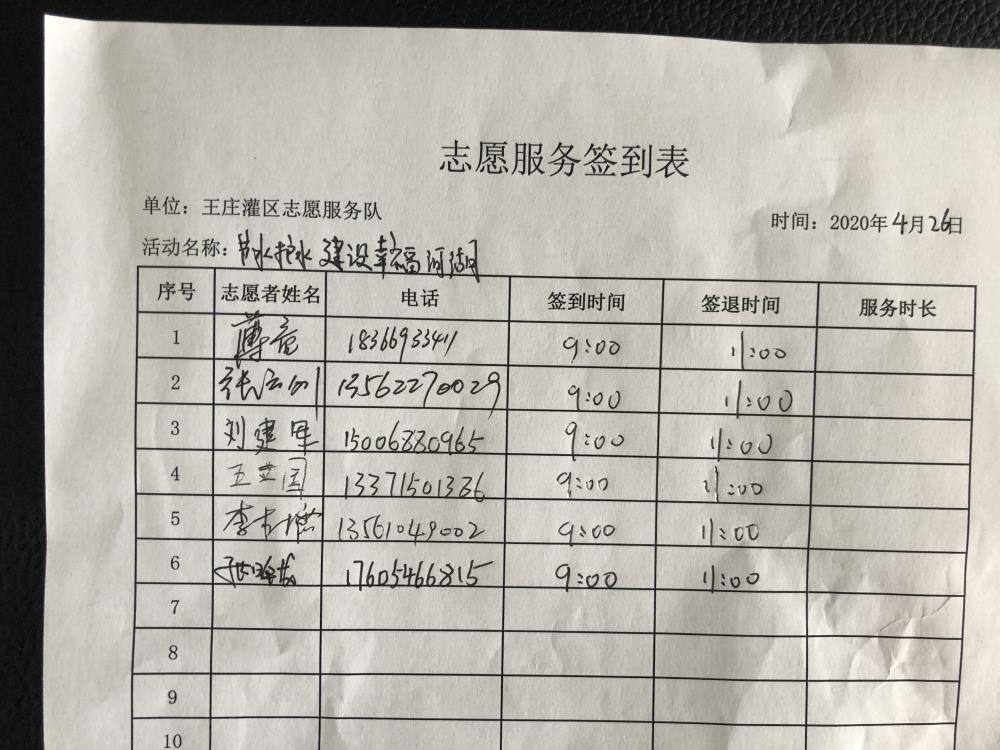 志愿服务签到表
单位：王庄灌区志愿服务队
时间：2020年4月26日
活动名称：节水护水 建设幸福河湖
序号 志愿者姓名 电话 签到时间 签退时间 服务时长
1 18366933411 9:00 11:00
2 13562270029 9:00 11:00
3 刘建军 15006880965 9:00 11:00
4 13371501386 9:00 11:00
5 李 13561049002 9:00 11:00
6 17605466815 9:00 11:00
7
8
9
10